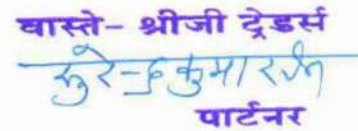 वास्ते- श्रीजी ट्रेडर्स
सुरेन्द्र कुमार जैन
पार्टनर